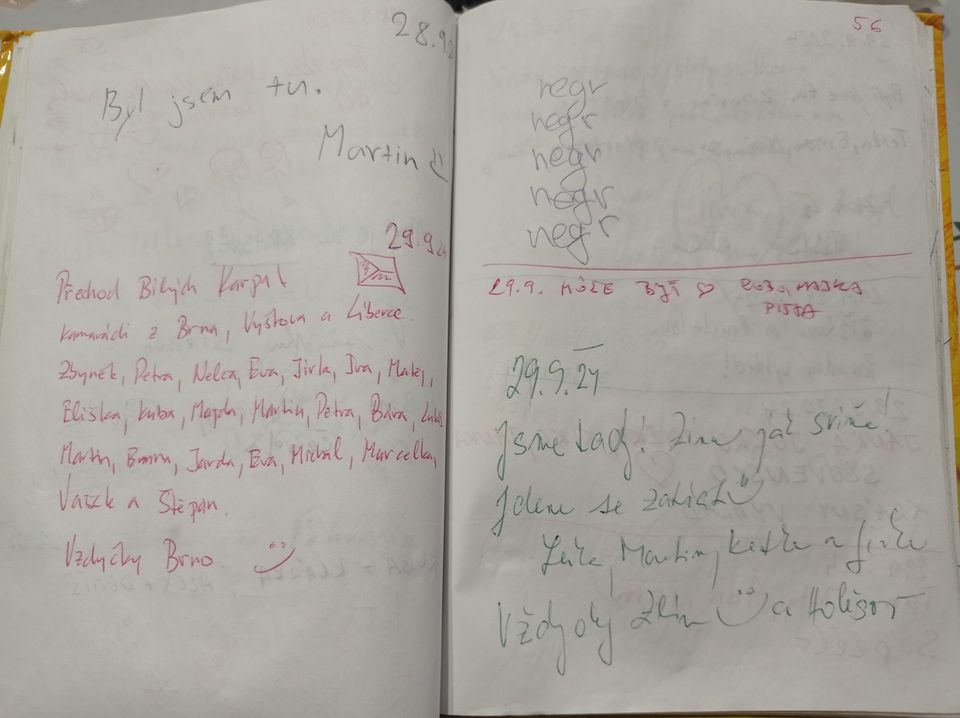 28.9.
Byl jsem tu.
Martin
29.9.24
Přechod Bílých Karpat
kamarádi z Brna, Vyškova a Liberce.
Zbyněk, Petra, Nelča, Eva, Jirka, Iva, Matěj,
Eliška, Kuba, Majda, Martin, Petra, Bára,
Martin, Jarda, Eva, Michal, Marcelka,
Vašek a Štěpán.
Vždycky Brno
56
negr
negr
negr
negr
negr
29.9. MÔŽE BYŤ
PIŠTA
29.9.24
Jsme tady! Zima jak svině!
Jdeme se
Martin, a
Vždycky Zlín a Holešov